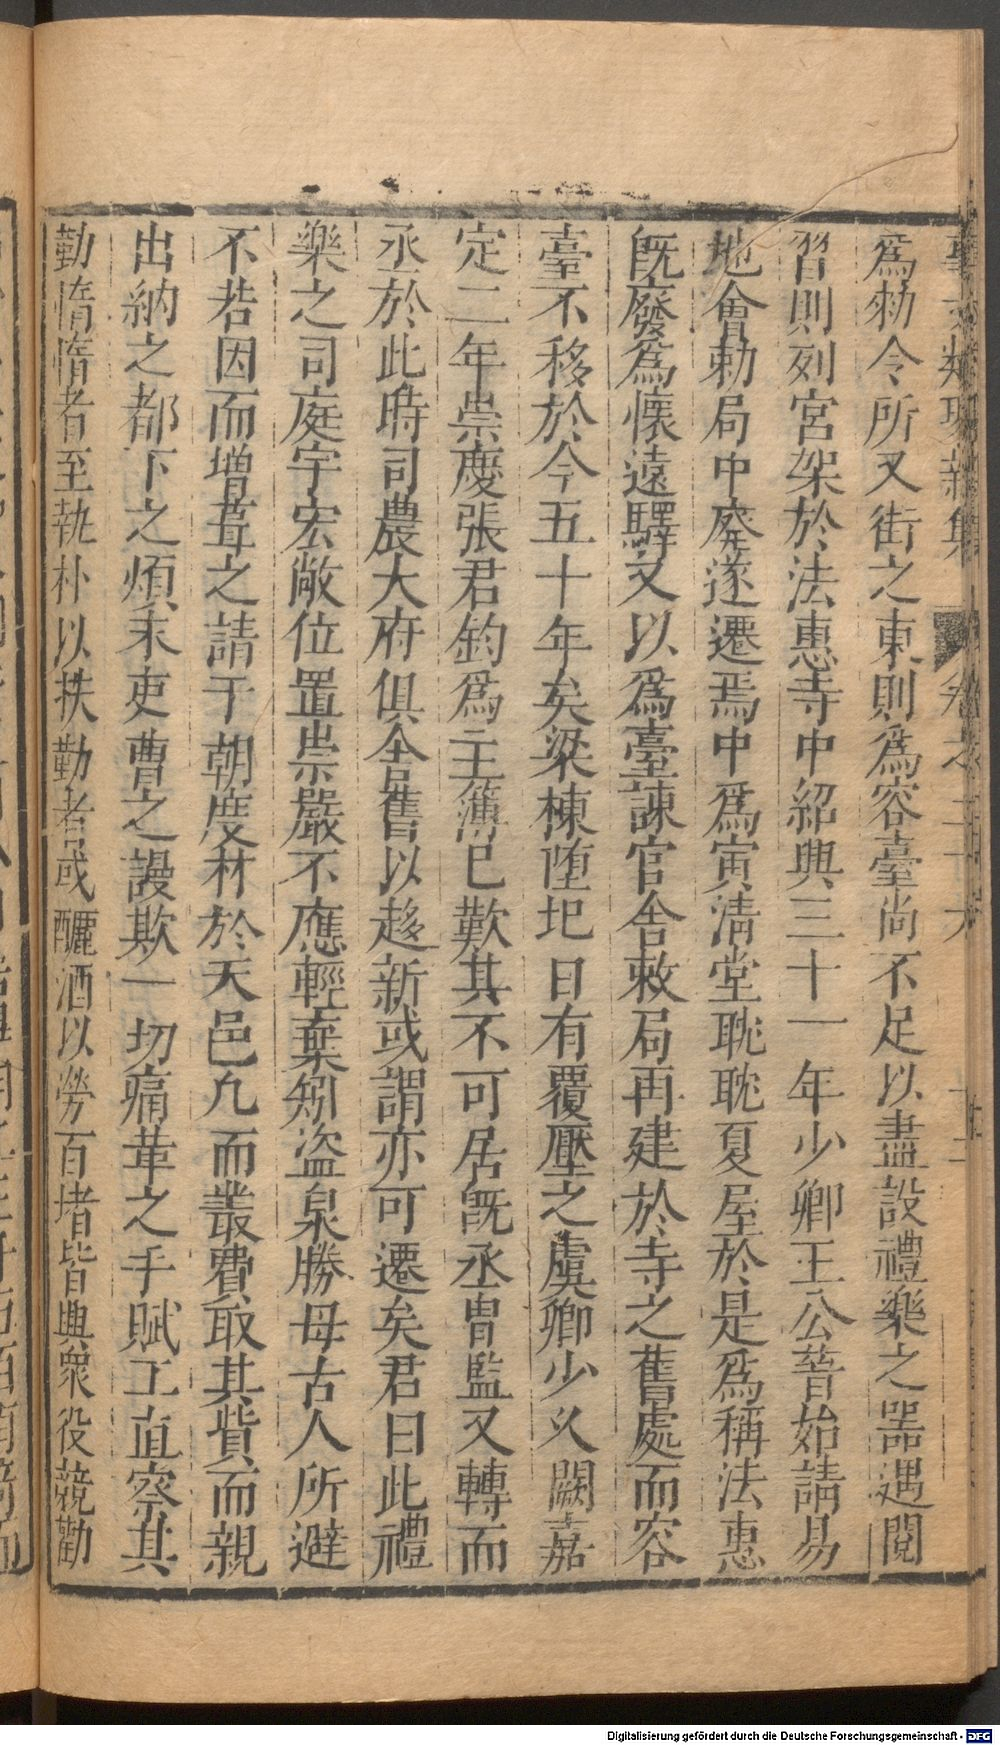 爲勑令所又街之東則爲容臺尚不足以盡設禮樂之器遇閱
習則列宮架於法惠寺中紹興三十一年少卿王公普始請易
地會勑局中廢遂遷焉中爲寅清堂耽耽夏屋於是爲稱法惠
旣廢爲懷遠驛又以爲臺諫官舍敕局再建於寺之舊處而容
臺不移於今五十年矣梁棟墮圯日有覆壓之虞卿少久闕嘉
定二年崇慶張君鈞爲主簿已歎其不可居旣丞胄監又轉而
丞於此時司農大府俱合舊以趍新或謂亦可遷矣君曰此禮
樂之司庭宇宏敞位置崇嚴不應輕棄矧盜泉勝母古人所避
不若因而增葺之請于朝度材於天邑凢而叢費取其貲而親
出納之都下之煩末吏曹之謾欺一切痛革之手賦工直察其
勤惰惰者至執朴以抶勤者或釃酒以勞百堵皆興衆役競勸
卷之二十六
Digitalisierung gefördert durch die Deutsche Forschungsgemeinschaft - DFG